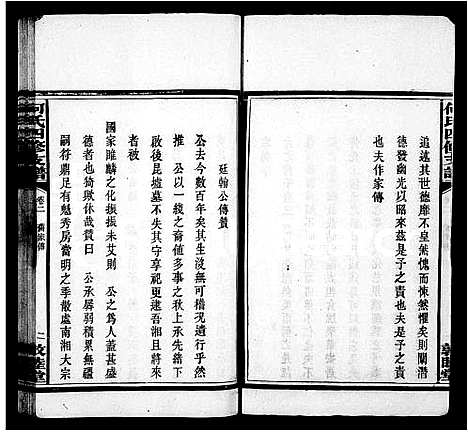 何氏四修支譜
敦睦堂
追述其世德靡不皇然愧而悚然懼矣則闡潛
德發幽光以昭來茲是子之責也夫是子之責
也夫作家傳
廷翰公傳贊
公去今數百年矣其生沒無可稽況遺行乎然
推 公以一綫之裔値多事之秋上承先緒下
啟後昆墳墓不失其守享祀更逮吾湘且將來
者被
國家雎麟之化振振未艾則 公之爲人蓋甚盛
德者也猗歟休哉贊曰 公承孱弱積累無疆
嗣符鼎足有魁秀房當明之季散處南湘大宗
何氏四修支譜
卷二
二
敦睦堂